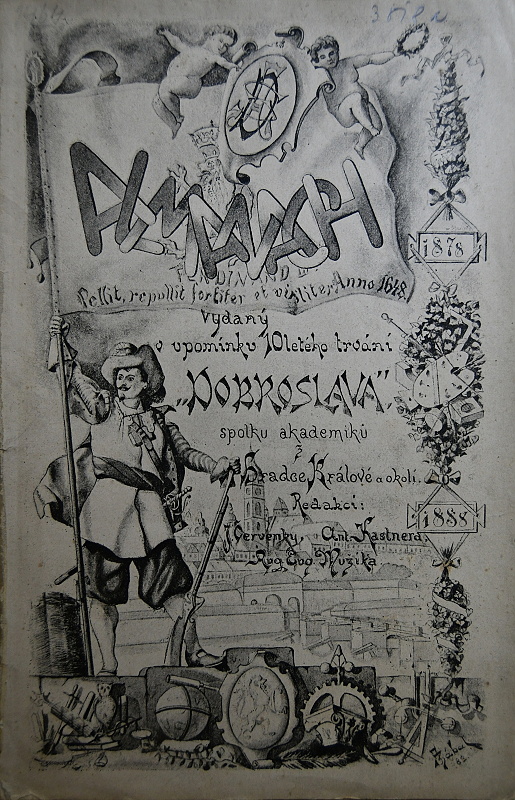 ALMANACH
Pellit, repullit fortiter et viriliter Anno 1648.
Vydaný
v upomínku 10letého trvání
„DOBROSLAVA”.
spolku akademiků
z
Hradce Králové a okolí.
Redakcí:
J. Červenky, Ant. Kastnera,
Aug. Eug. Mužíka
1878
1888